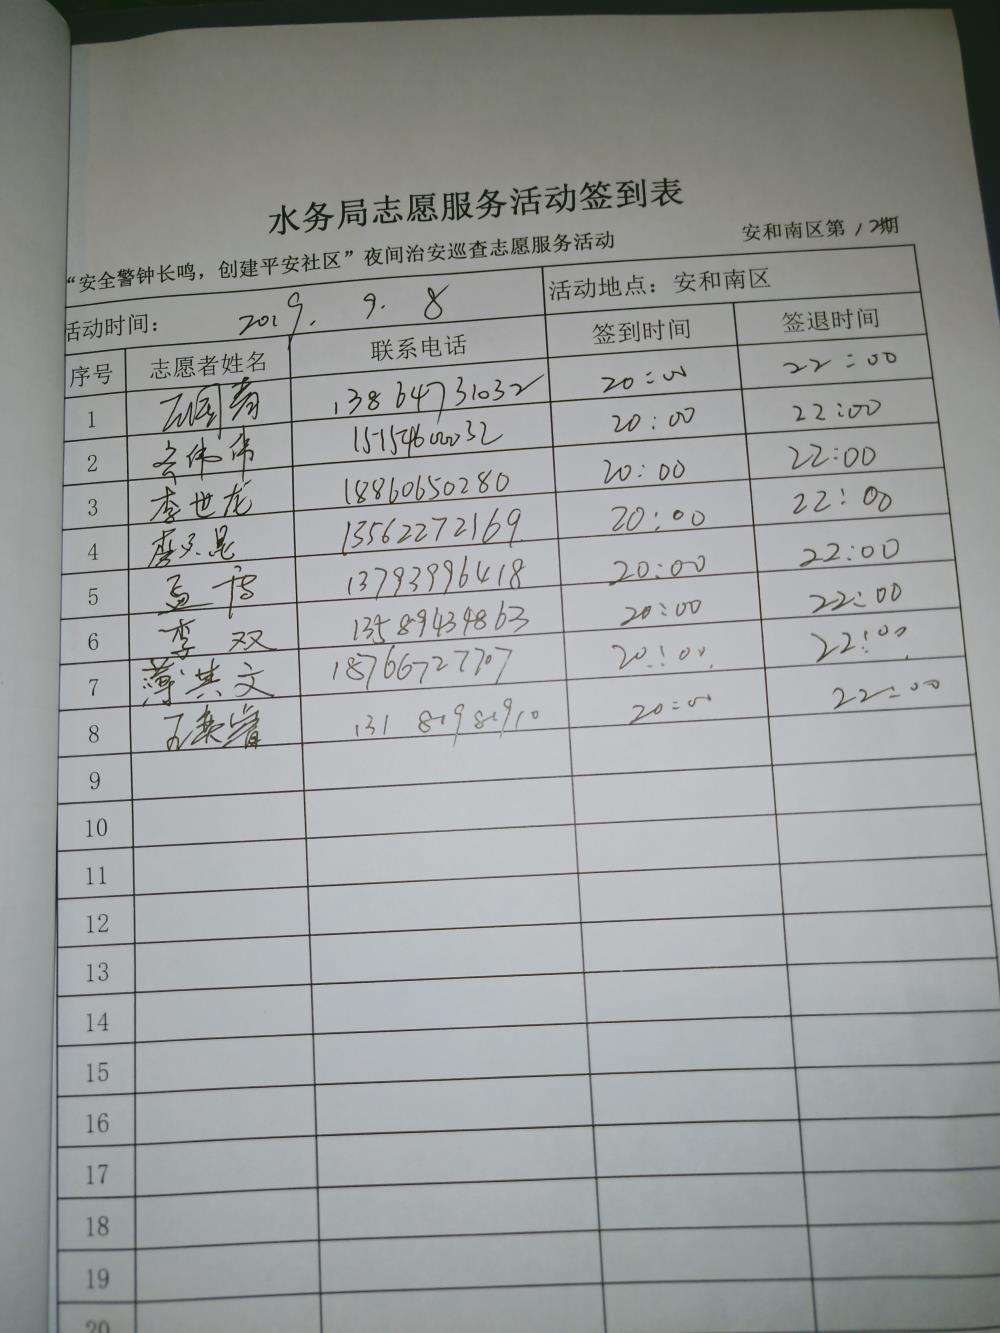 水务局志愿服务活动签到表
“安全警钟长鸣，创建平安社区”夜间治安巡查志愿服务活动 安和南区第12期
活动时间： 2019. 9. 8 活动地点：安和南区
序号 志愿者姓名 联系电话 签到时间 签退时间
1 13864731032 20:00 22:00
2 伟伟 15154600032 20:00 22:00
3 李世龙 18860650280 20:00 22:00
4 李 昆 13562272169 20:00 22:00
5 孟博 13793996418 20:00 22:00
6 李双 13589434863 20:00 22:00
7 薄其文 18766727707 20:00 22:00
8 20:00 22:00
9
10
11
12
13
14
15
16
17
18
19
20